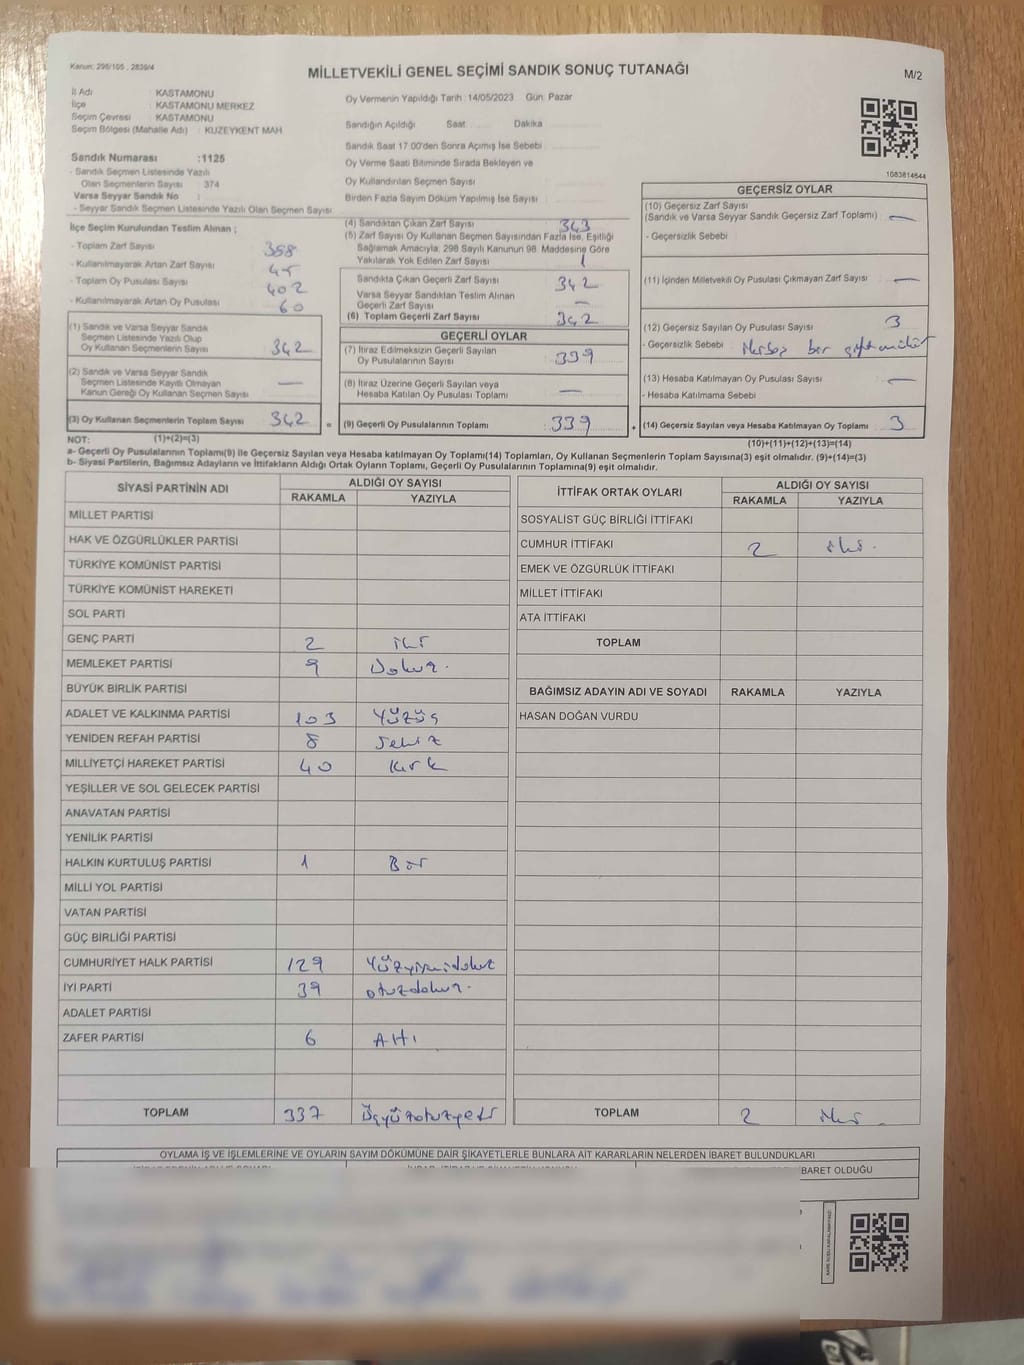 Kanun: 298/105 , 2839/4
MİLLETVEKİLİ GENEL SEÇİMİ SANDIK SONUÇ TUTANAĞI
M/2
İl Adı : KASTAMONU
İlçe : KASTAMONU MERKEZ
Seçim Çevresi : KASTAMONU
Seçim Bölgesi (Mahalle Adı) : KUZEYKENT MAH
Sandık Numarası :1125
- Sandık Seçmen Listesinde Yazılı
Olan Seçmenlerin Sayısı : 374
Varsa Seyyar Sandık No :
- Seyyar Sandık Seçmen Listesinde Yazılı Olan Seçmen Sayısı
Oy Vermenin Yapıldığı Tarih :14/05/2023 Gün: Pazar
Sandığın Açıldığı Saat Dakika
Sandık Saat 17:00'den Sonra Açımış İse Sebebi
Oy Verme Saati Bitiminde Sırada Bekleyen ve
Oy Kullandırılan Seçmen Sayısı
Birden Fazla Sayım Döküm Yapılmış İse Sayısı
1083814644
İlçe Seçim Kurulundan Teslim Alınan ;
- Toplam Zarf Sayısı 388
- Kullanılmayarak Artan Zarf Sayısı 45
- Toplam Oy Pusulası Sayısı 402
- Kullanılmayarak Artan Oy Pusulası 60
(1) Sandık ve Varsa Seyyar Sandık
Seçmen Listesinde Yazılı Olup
Oy Kullanan Seçmenlerin Sayısı 342
(2) Sandık ve Varsa Seyyar Sandık
Seçmen Listesinde Kayıtlı Olmayan
Kanun Gereği Oy Kullanan Seçmen Sayısı —
(3) Oy Kullanan Seçmenlerin Toplam Sayısı 342 =
(1)+(2)=(3)
(4) Sandıktan Çıkan Zarf Sayısı 343
(5) Zarf Sayısı Oy Kullanan Seçmen Sayısından Fazla İse, Eşitliği
Sağlamak Amacıyla, 298 Sayılı Kanunun 98. Maddesine Göre
Yakılarak Yok Edilen Zarf Sayısı 1
Sandıkta Çıkan Geçerli Zarf Sayısı 342
Varsa Seyyar Sandıktan Teslim Alınan
Geçerli Zarf Sayısı —
(6) Toplam Geçerli Zarf Sayısı 342
GEÇERLİ OYLAR
(7) İtiraz Edilmeksizin Geçerli Sayılan
Oy Pusulalarının Sayısı 339
(8) İtiraz Üzerine Geçerli Sayılan veya
Hesaba Katılan Oy Pusulası Toplamı —
(9) Geçerli Oy Pusulalarının Toplamı :339 +
GEÇERSİZ OYLAR
(10) Geçersiz Zarf Sayısı
(Sandık ve Varsa Seyyar Sandık Geçersiz Zarf Toplamı) —
- Geçersizlik Sebebi
(11) İçinden Milletvekili Oy Pusulası Çıkmayan Zarf Sayısı —
(12) Geçersiz Sayılan Oy Pusulası Sayısı 3
- Geçersizlik Sebebi
(13) Hesaba Katılmayan Oy Pusulası Sayısı —
- Hesaba Katılmama Sebebi
(14) Geçersiz Sayılan veya Hesaba Katılmayan Oy Toplamı 3
(10)+(11)+(12)+(13)=(14)
NOT:
a- Geçerli Oy Pusulasının Toplamı(9) ile Geçersiz Sayılan veya Hesaba katılmayan Oy Toplamı(14) Toplamları, Oy Kullanan Seçmenlerin Toplam Sayısına(3) eşit olmalıdır. (9)+(14)=(3)
b- Siyasi Partilerin, Bağımsız Adayların ve İttifakların Aldığı Ortak Oyların Toplamı, Geçerli Oy Pusulalarının Toplamına(9) eşit olmalıdır.
SİYASİ PARTİNİN ADI ALDIĞI OY SAYISI
RAKAMLA YAZIYLA
MİLLET PARTİSİ
HAK VE ÖZGÜRLÜKLER PARTİSİ
TÜRKİYE KOMÜNİST PARTİSİ
TÜRKİYE KOMÜNİST HAREKETİ
SOL PARTİ
GENÇ PARTİ 2 iki
MEMLEKET PARTİSİ 9 Dokuz.
BÜYÜK BİRLİK PARTİSİ
ADALET VE KALKINMA PARTİSİ 103 Yüzüç
YENİDEN REFAH PARTİSİ 8 Sekiz
MİLLİYETÇİ HAREKET PARTİSİ 40 Kırk
YEŞİLLER VE SOL GELECEK PARTİSİ
ANAVATAN PARTİSİ
YENİLİK PARTİSİ
HALKIN KURTULUŞ PARTİSİ 1 Bir
MİLLİ YOL PARTİSİ
VATAN PARTİSİ
GÜÇ BİRLİĞİ PARTİSİ
CUMHURİYET HALK PARTİSİ 129 Yüzyirmidokuz
İYİ PARTİ 39 otuzdokuz.
ADALET PARTİSİ
ZAFER PARTİSİ 6 Altı
TOPLAM 337 Üçyüzotuzyedi
İTTİFAK ORTAK OYLARI ALDIĞI OY SAYISI
RAKAMLA YAZIYLA
SOSYALİST GÜÇ BİRLİĞİ İTTİFAKI
CUMHUR İTTİFAKI 2 iki.
EMEK VE ÖZGÜRLÜK İTTİFAKI
MİLLET İTTİFAKI
ATA İTTİFAKI
TOPLAM
BAĞIMSIZ ADAYIN ADI VE SOYADI RAKAMLA YAZIYLA
HASAN DOĞAN VURDU
TOPLAM 2 iki
OYLAMA İŞ VE İŞLEMLERİNE VE OYLARIN SAYIM DÖKÜMÜNE DAİR ŞİKAYETLERLE BUNLARA AİT KARARLARIN NELERDEN İBARET BULUNDUKLARI
BARET OLDUĞU